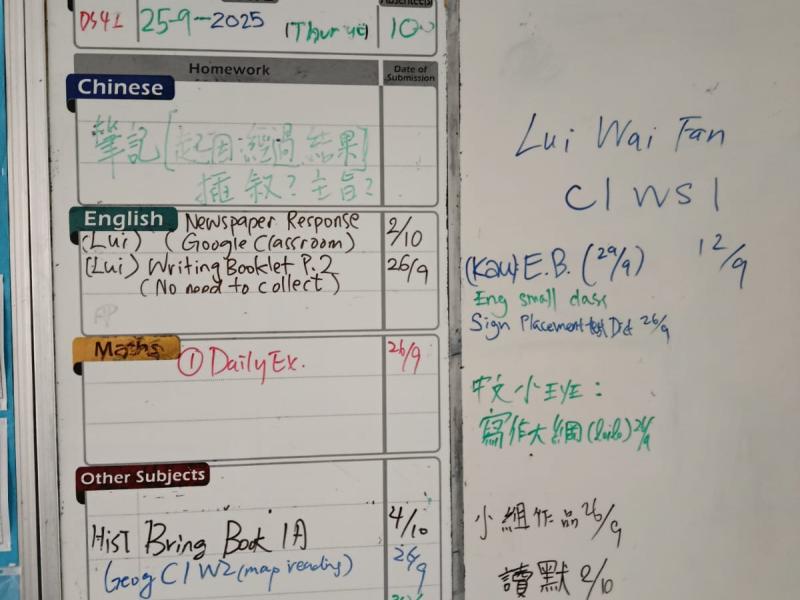 25-9-2025
Homework
Date of Submission
Chinese
筆記[起因 經過 結果]
插叙？主旨？
English
Newspaper Response 2/10
(Lui) (Google Classroom)
(Lui) Writing Booklet P.2 26/9
(No need to collect)
Maths
① Daily Ex. 26/9
Other Subjects
HisT Bring Book 1A 4/10
Geog C1W2 (map reading) 26/9
Lui Wai Fan
C1 WS1
12/9
(Kau) E.B. (29/9)
Eng small class
Sign Placement test Dict 26/9
中文小班：
寫作大綱 26/9
小組作品 26/9
讀默 2/10